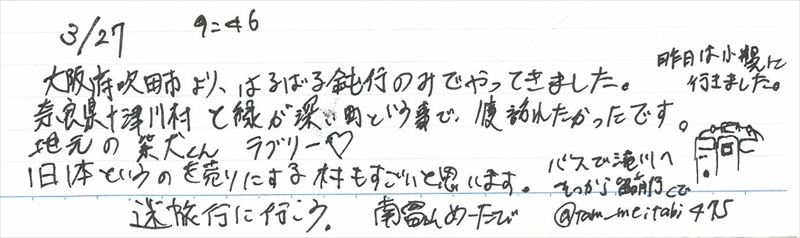 3/27 9:46
大阪府吹田市より、はるばる鈍行のみでやってきました。
昨日は小幌に
行きました。
奈良県十津川村と縁が深い町という事で、1度訪れたかったです。
地元の柴犬くん ラブリー♡
1日1本というのを売りにする村もすごいと思います。
バスで滝川へ
そっから留萌行くで
迷旅行に行こう。 南富山めーたび @tam_meitabi475